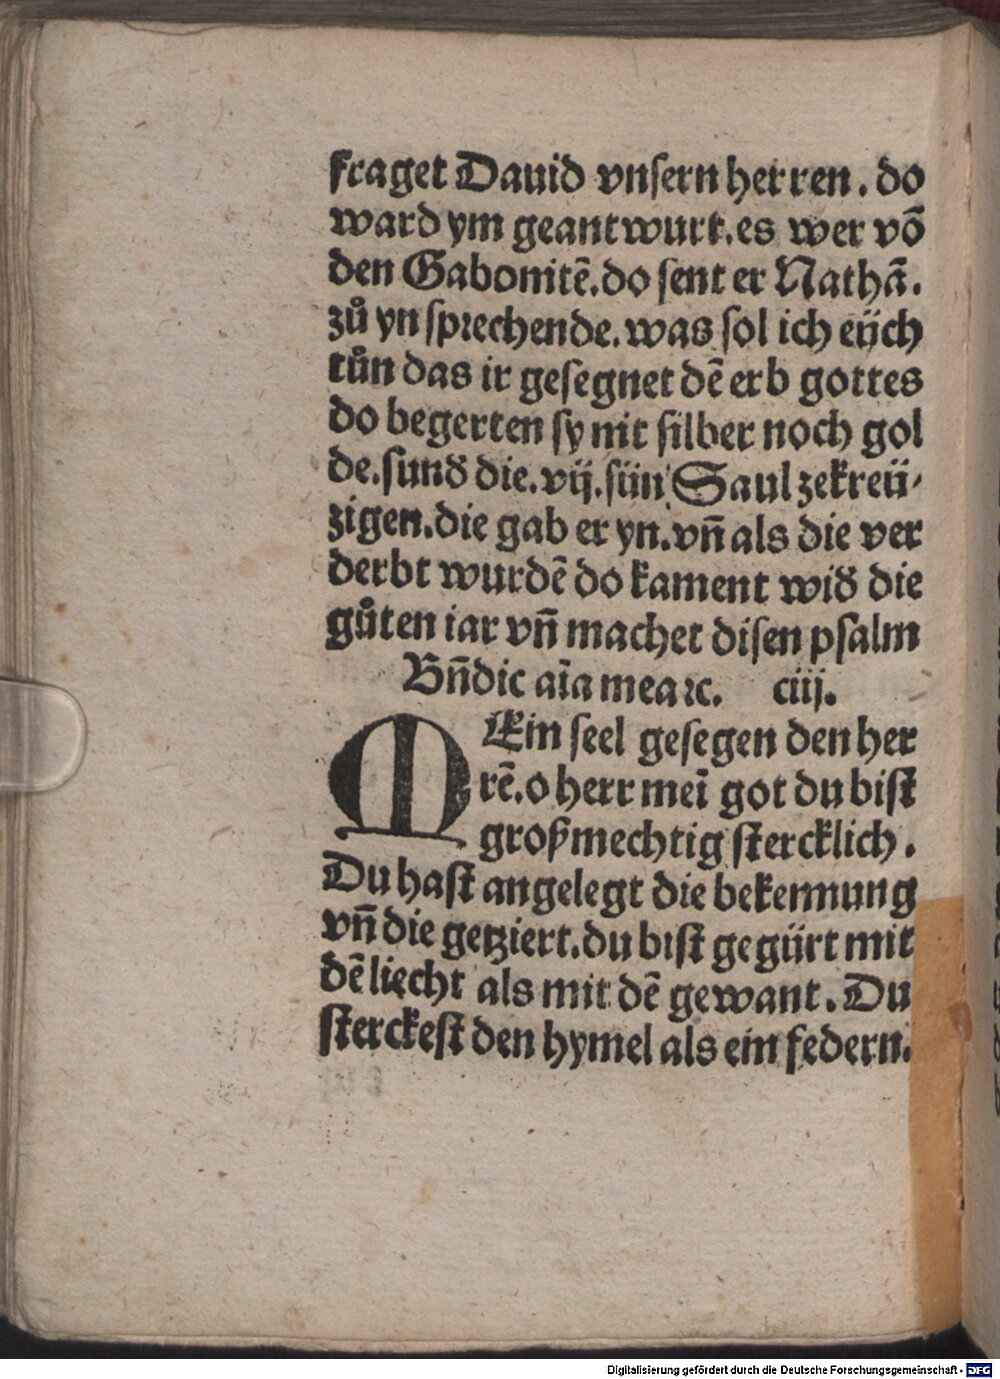 fraget Dauid vnsern herren. do
ward ym geantwurt. es wer võ
den Gabonitẽ. do sent er Nathã.
zů yn sprechende. was sol ich eüch
tůn das ir gesegnet dẽ erb gottes
do begerten sy nit silber noch gol
de. sunď die. vij. sün Saul zekreü⸗
zigen. die gab er yn. vñ als die ver
derbt wurdẽ do kament wiď die
gůten iar vñ machet disen psalm
Bñdic aĩa mea ꝛc. ciij.
MEin seel gesegen den her
rẽ. o herr meĩ got du bist
großmechtig stercklich.
Du hast angelegt die bekennung
vñ die getziert. du bist gegürt mit
dẽ liecht als mit dẽ gewant. Du
sterckest den hymel als ein federn.
Digitalisierung gefördert durch die Deutsche Forschungsgemeinschaft - DFG